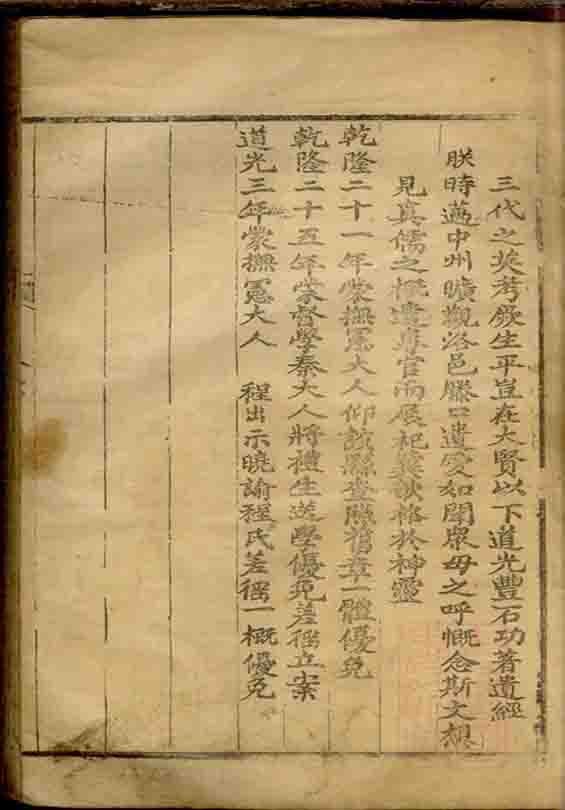 三代之英考厥生平豈在大賢以下道光豐石功著遺經
朕時邁中州曠觀洛邑賸口遺愛如聞眾母之呼慨念斯文想
見真儒之概遣專官而展祀冀歆格於神靈
乾隆二十一年蒙撫憲大人仰該縣查照舊章一體優免
乾隆二十五年蒙督學秦大人將禮生送學優免差徭立案
道光三年蒙撫憲大人 程出示曉諭程氏差徭一概優免